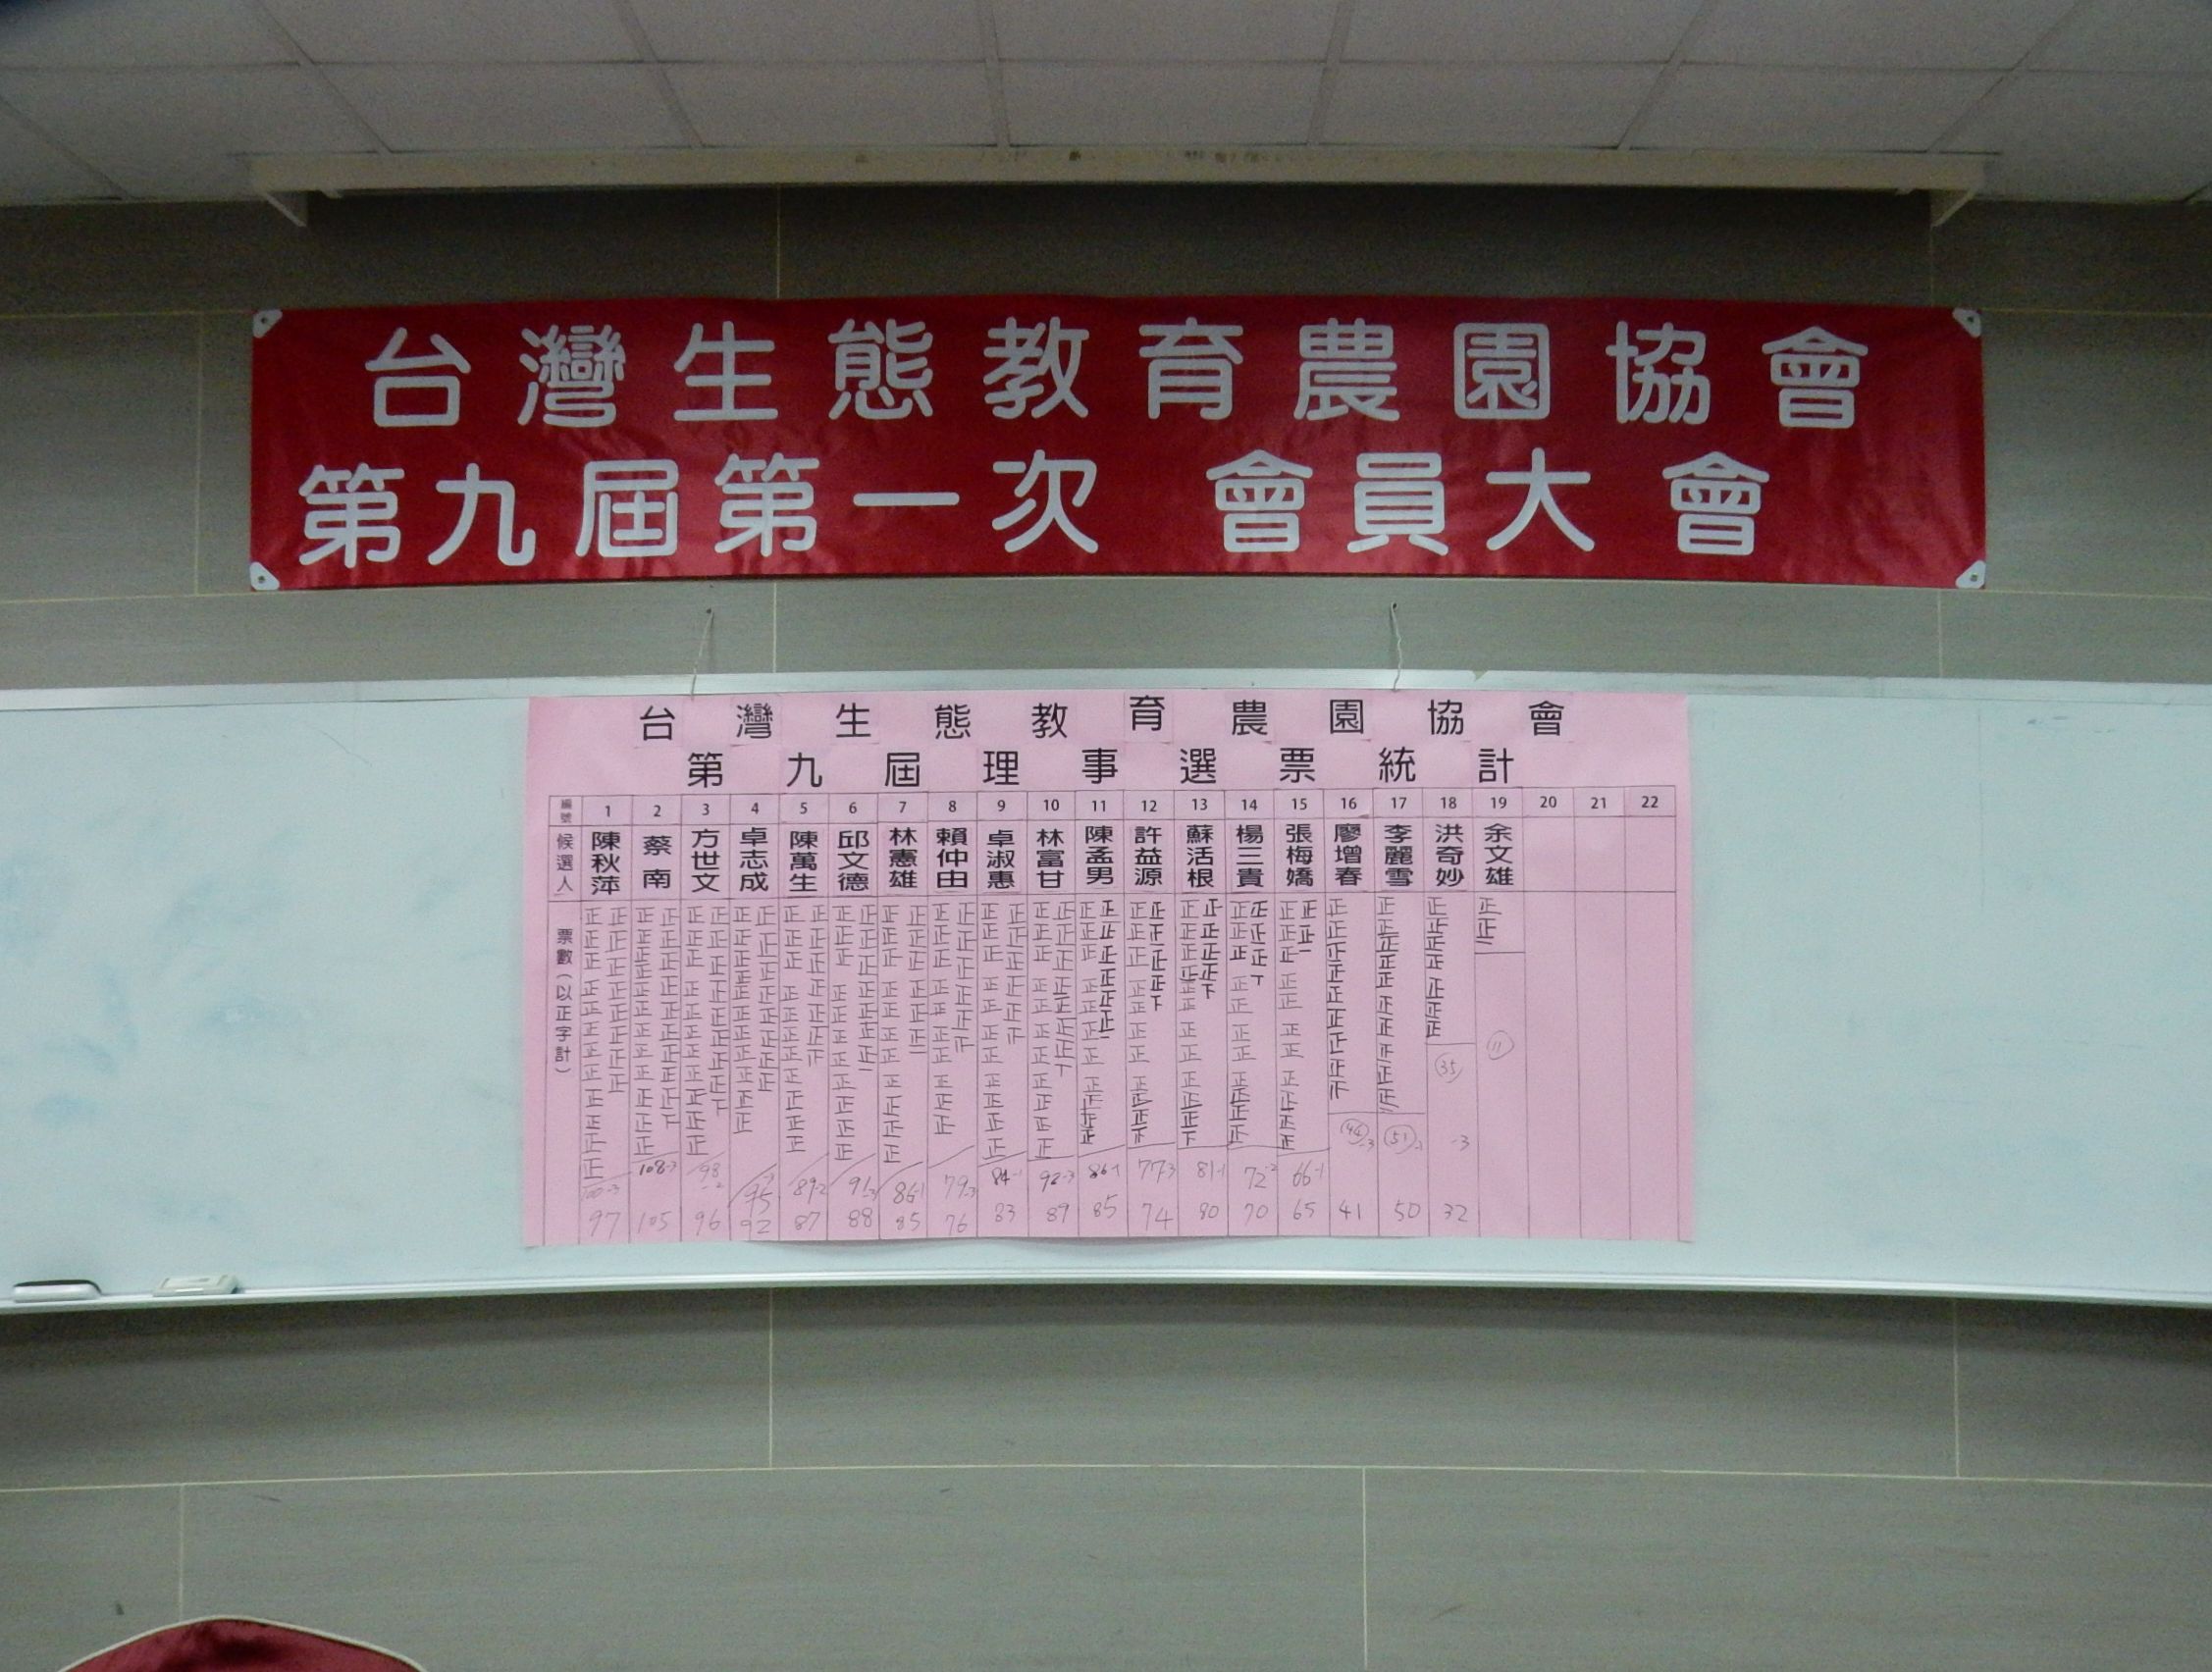 台灣生態教育農園協會
第九屆第一次 會員大會
台灣生態教育農園協會
第九屆理事選票統計
編號 1 2 3 4 5 6 7 8 9 10 11 12 13 14 15 16 17 18 19 20 21 22
候選人 陳秋萍 蔡南 方世文 卓志成 陳萬生 邱文德 林憲雄 賴仲由 卓淑惠 林富甘 陳孟男 許益源 蘇活根 楊三貴 張梅嬌 廖增春 李麗雪 洪奇妙 余文雄
票數(以正字計)
35 11
44-3 51-1 -3
100-3 108-3 98-2 95 89-2 91-3 86-1 79-3 84-1 92-3 86-1 77-3 81-1 72-2 66-1
97 105 96 92 87 88 85 76 83 89 85 74 80 70 65 41 50 32